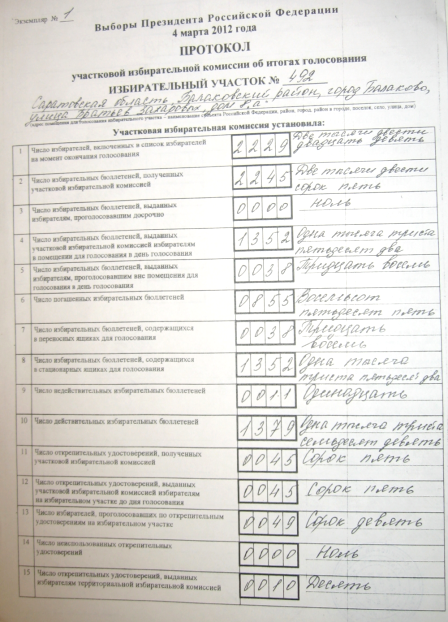 Экземпляр № 1
Выборы Президента Российской Федерации
4 марта 2012 года
ПРОТОКОЛ
участковой избирательной комиссии об итогах голосования
ИЗБИРАТЕЛЬНЫЙ УЧАСТОК № 492
Саратовская область, Балаковский район, город Балаково,
улица Братьев Захаровых, дом 8а
Участковая избирательная комиссия установила:
1 Число избирателей, включенных в список избирателей на момент окончания голосования 2229 Две тысячи двести двадцать девять
2 Число избирательных бюллетеней, полученных участковой избирательной комиссией 2245 Две тысячи двести сорок пять
3 Число избирательных бюллетеней, выданных избирателям, проголосовавшим досрочно 0000 Ноль
4 Число избирательных бюллетеней, выданных участковой избирательной комиссией избирателям в помещении для голосования в день голосования 1352 Одна тысяча триста пятьдесят два
5 Число избирательных бюллетеней, выданных избирателям, проголосовавшим вне помещения для голосования в день голосования 0038 Тридцать восемь
6 Число погашенных избирательных бюллетеней 0855 Восемьсот пятьдесят пять
7 Число избирательных бюллетеней, содержащихся в переносных ящиках для голосования 0038 Тридцать восемь
8 Число избирательных бюллетеней, содержащихся в стационарных ящиках для голосования 1352 Одна тысяча триста пятьдесят два
9 Число недействительных избирательных бюллетеней 0011 Одинадцать
10 Число действительных избирательных бюллетеней 1379 Одна тысяча триста семьдесят девять
11 Число открепительных удостоверений, полученных участковой избирательной комиссией 0045 Сорок пять
12 Число открепительных удостоверений, выданных участковой избирательной комиссией избирателям на избирательном участке до дня голосования 0045 Сорок пять
13 Число избирателей, проголосовавших по открепительным удостоверениям на избирательном участке 0049 Сорок девять
14 Число неиспользованных открепительных удостоверений 0000 Ноль
15 Число открепительных удостоверений, выданных избирателям территориальной избирательной комиссией 0010 Десять